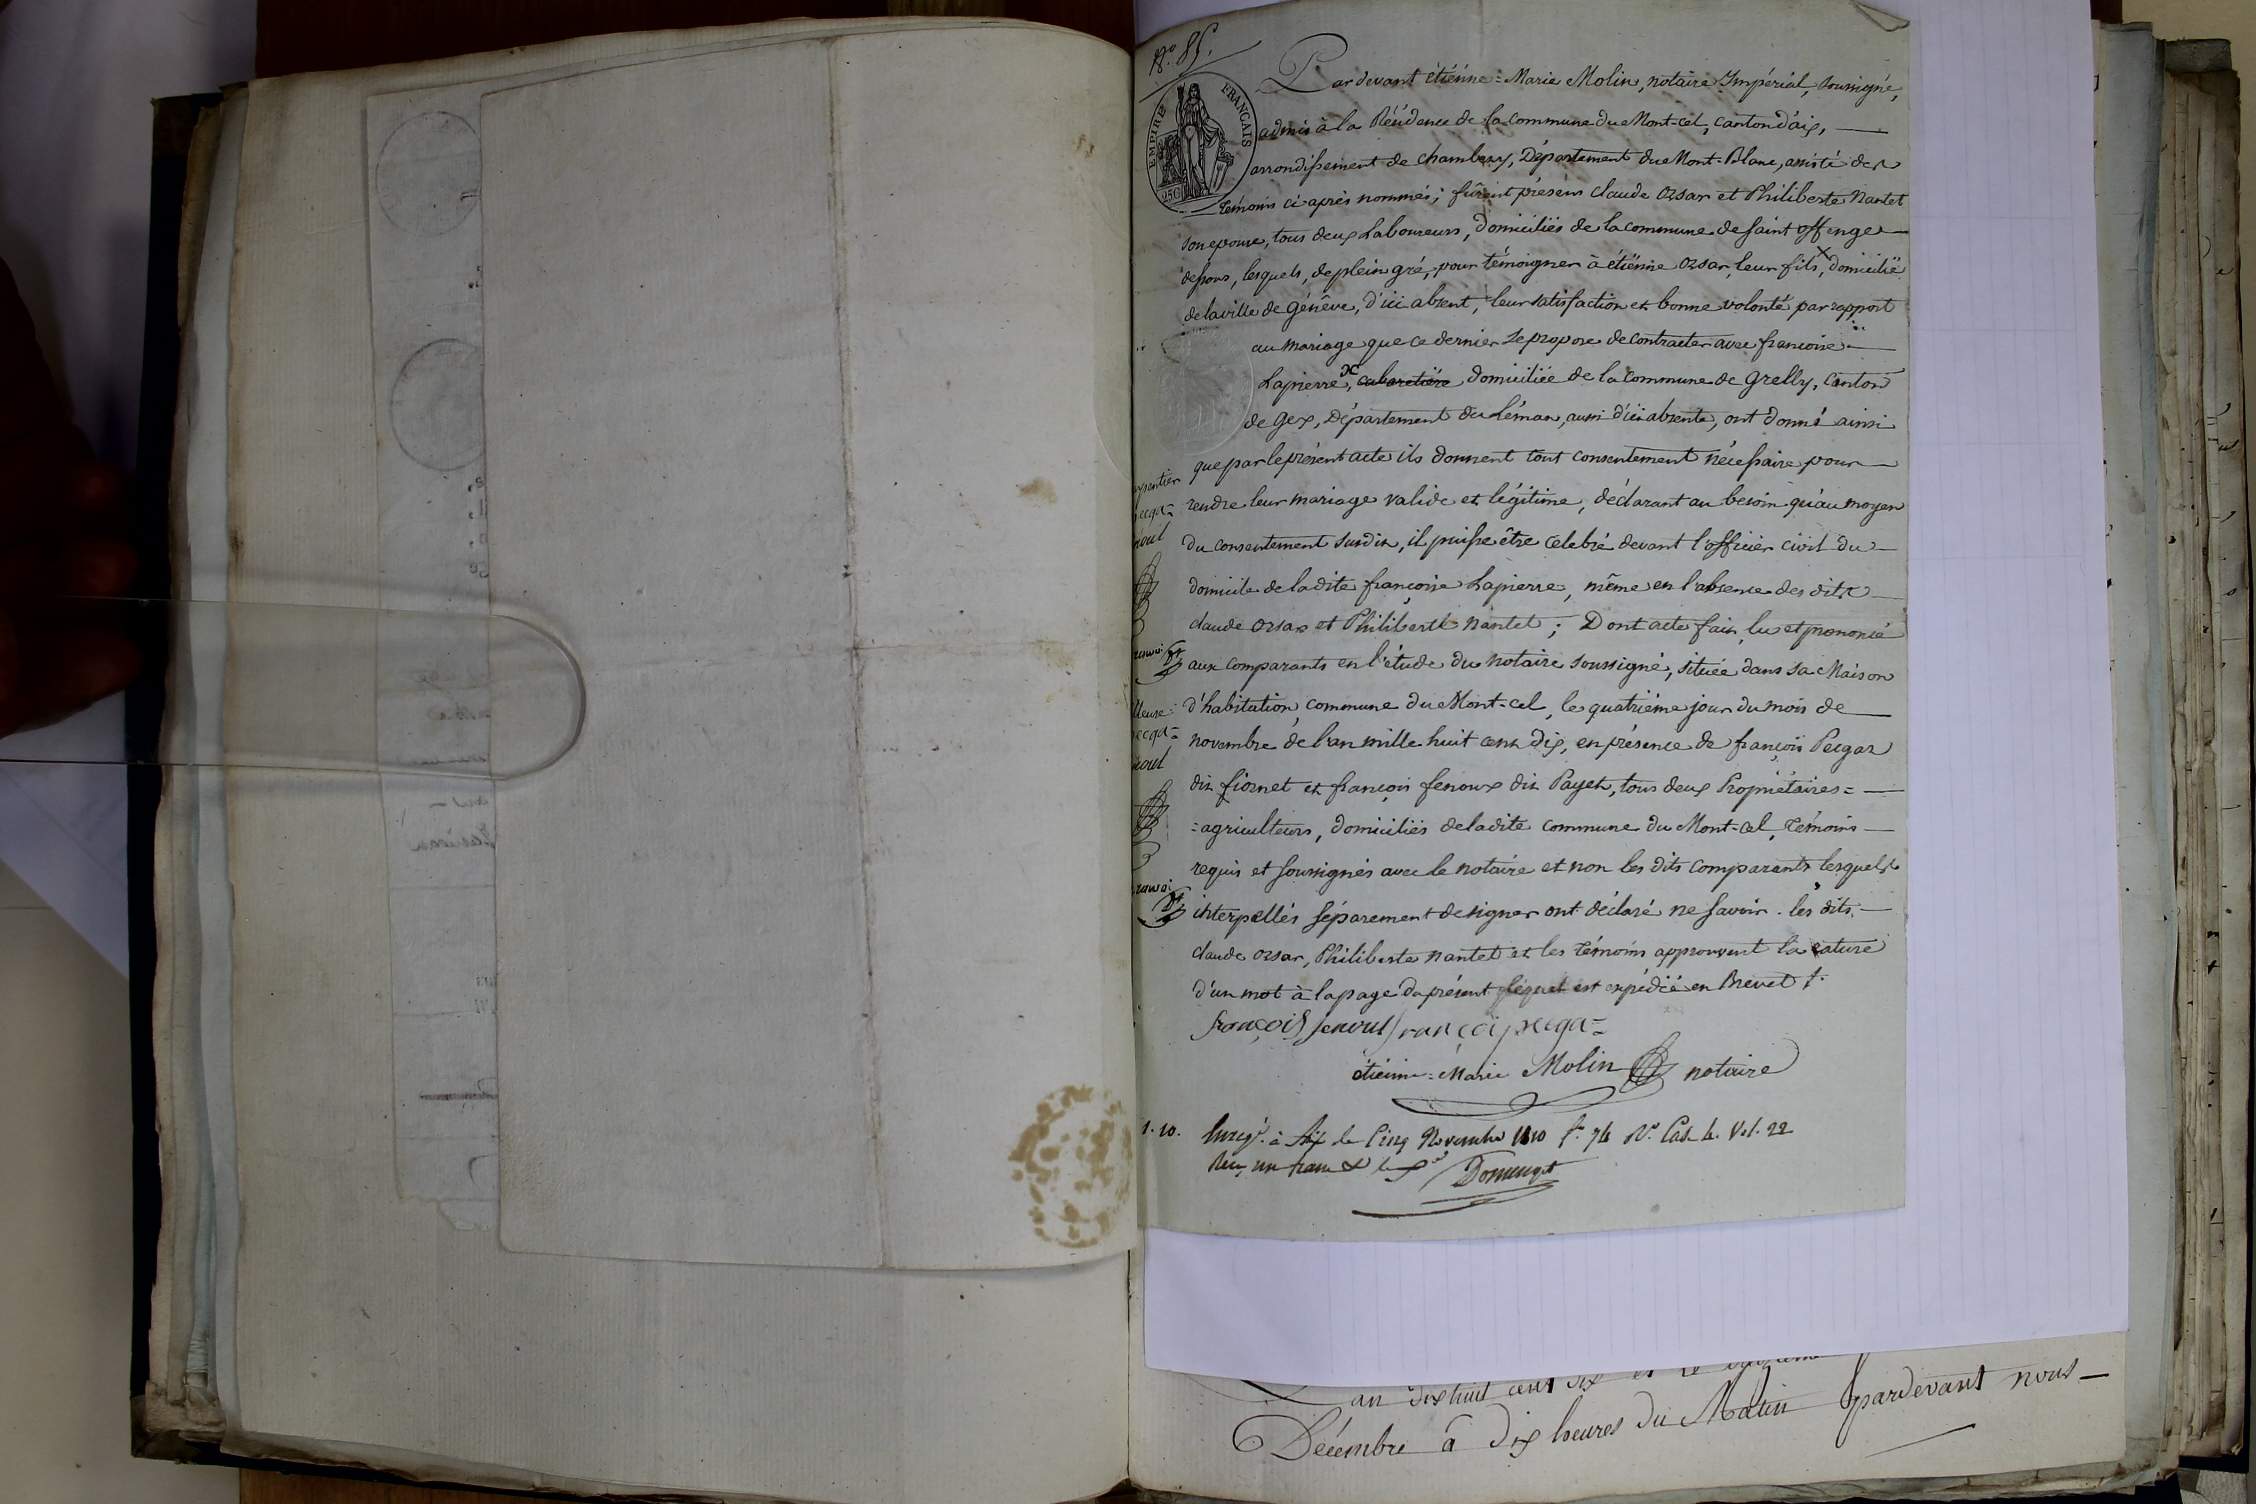 N.o 85.
EMPIRE FRANÇAIS
25C
Pardevant étiénne=Marie Molin, notaire Impérial, soussigné,
admis à la Résidence de la commune du Mont-cel, canton d'aix,
arrondissement de chambery, Département du Mont-Blanc, assisté des
témoins ci après nommés; fûrent présens claude orsar et Philiberte Nantet
son epouse, tous deux Laboureurs, domiciliés de la commune de saint offenge
dessous, lesquels, de plein gré, pour témoigner à étiénne orsar, leur fils, × domicilié
de la ville de génêve, d'ici absent, leur satisfaction et bonne volonté par rapport
au mariage que ce dernier se propose de contracter avec francoise
Lapierre, × cabaretière domiciliée de la commune de grelly, canton
de gex, Département du Léman, aussi d'ici absente, ont donné ainsi
que par le présent acte ils donnent tout consentement nécessaire pour
rendre leur mariage valide et légitime, déclarant au besoin qu'au moyen
du consentement susdit, il puisse être celebré devant l'officier civil du
domicile de ladite françoise Lapierre, même en l'absence des dits
claude orsar et Philiberte Nantet; Dont acte fait, lu et prononcé
aux comparants en l'étude du notaire soussigné, située dans sa Maison
d'habitation, commune du Mont-cel, le quatrième jour du mois de
novembre de l'an mille huit cent dix, en présence de françois Pecgar
dit fiornet et françois fenoux dit Payet, tous deux Propriétaires=
=agriculteurs, domiciliés de ladite commune du Mont-cel, témoins
requis et soussignés avec le notaire et non les dits comparants lesquels
interpellés séparement de signer ont déclaré ne savoir. les dits
claude orsar, Philiberte nantet et les témoins approuvent la rature
d'un mot à la page du présent lequel est expédié en Brevet
françois fenoul françoi pecga=
étiénne=Marie Molin notaire
1.10. Enreg.é à Aix le Cinq Novembre 1810 f.o 74 R.o Cas. 4. Vol. 22
Reçu un franc
Domenget
pecga=
noul
renvoi
pecga=
noul
renvoi
an dixhuit cent dix et le
Décembre à dix heures du Matin pardevant nous